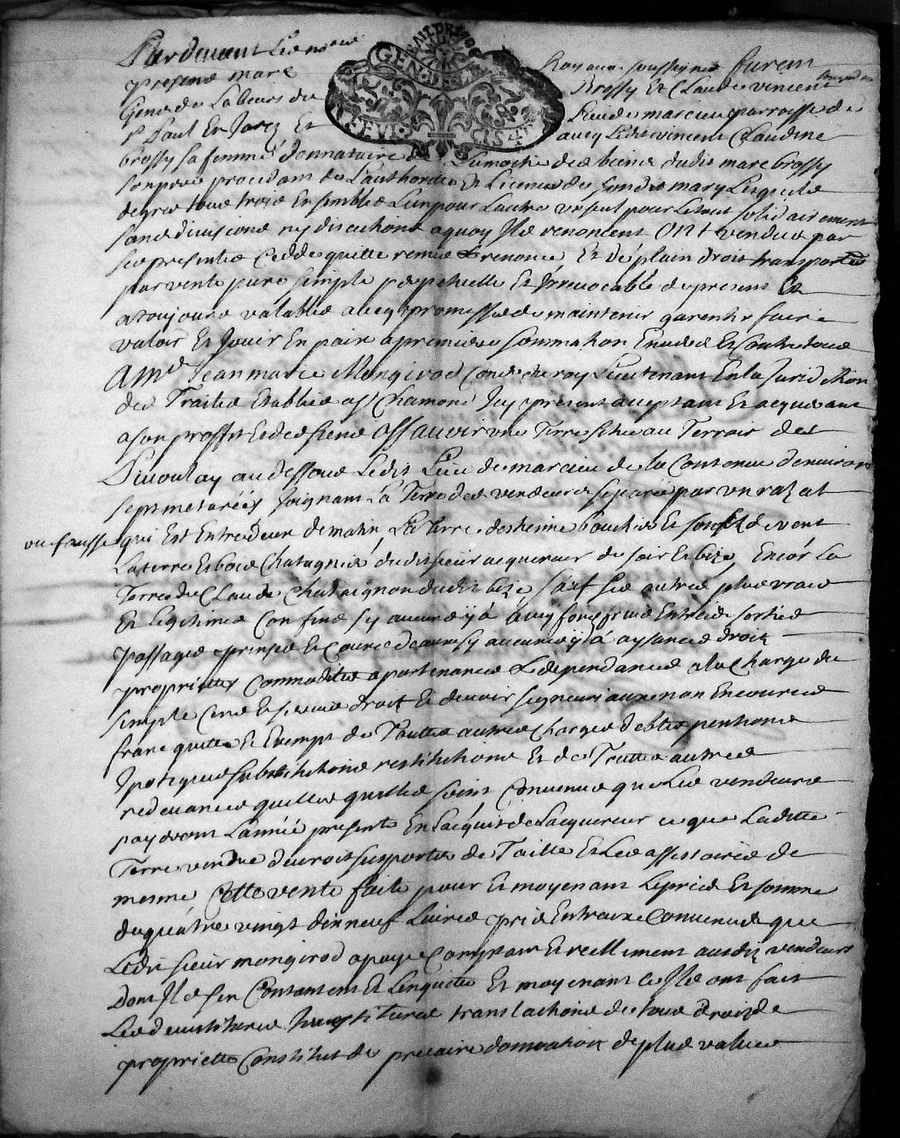 Pardevant Les no.re Royaux soussignés furent
presens marc Brossy Et Claude vincent
Gene de Labeurs du Lieu de marcieu parroisse de
St Paul En Jarez Et avec ledit vincent Claudine
brossy sa femme donnataire de La moitié des biens dudit marc brossy
son pere procedans de L'authorité Et Licence desdits mary Lesquels
de gré tous trois Ensemble L'un pour L'autre un seul pour Le tout solidairement
sans division ny discutions a quoy Ils renoncent ONT vendu par
ses presentes cedde quitte remis Et renoncé Et de plain droit transporté
par vente pure simple perpetuelle Et Irrevocable des present Et
a toujours valable avec promesse de maintenir garentir faire
valoir Et Jouir En paix a premiere sommation Envers Et Contre tous
A Me Jean marie Mongirod Con.er du roy Lieutenant En la Juridiction
des Traites Establie a St Chamond Icy present aceptant Et acquerant
a son proffit Et des siens ASSAVOIR une Terre scituee au Terroir de
au dessous Ledit Lieu de marcieu de la Contenue d'environ
sept meterées Joignant La Terre des vendeurs separée par un razat
ou fausse qui Est Entre deux de matin La Terre de Bouchet de vent
La terre Et bois Chatagnier dudit sieur acquereur de soir Et bize Encor La
Terre de Claude Chataignon dudit bize sauf ses autres plus vrais
Et Legitimes Confins sy aucuns y a avec fons fruits Entrées sorties
passages prises Et Cours d'eaux sy aucuns y a aysances droits
proprietés Commodités apartenances Et dependances a la Charge du
simple Cens Et servis droit Et devoir seigneuriaux non Encourus
franc quitte Et Exempt de Toutes autres Charges debtes penthions
Ipoteques substitutions restitutions Et de Toutes autres
redevances quelles quelles soint Convenu que Les vendeurs
payeront L'année presente En L'acquit de L'acquereur ce que Laditte
Terre vendue devroit suporter de Taille Et Les assessoires de
mesme Cette vente faite pour Et moyenant Le prix Et somme
de quatre vingt dix neuf Livres prix Entreux Convenu que
Ledit sieur mongirod a payé Comptant Et reellement ausdits vendeurs
Dont Ils s'en Contantent Et L'enquittes Et moyenant ce Ils ont fait
Les demistitures Investitures translations de tous droits de
proprietté Constitut de precaire donnation de plus value